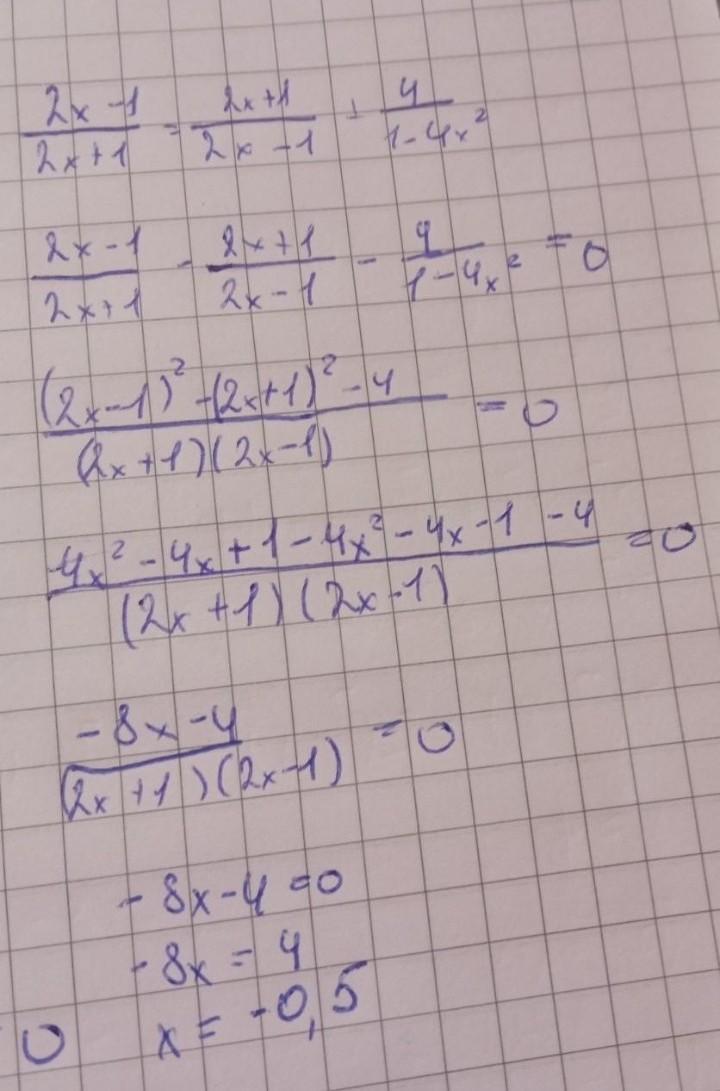 (2x-1)/(2x+1) = (2x+1)/(2x-1) + 4/(1-4x²)
(2x-1)/(2x+1) - (2x+1)/(2x-1) - 4/(1-4x²) = 0
((2x-1)² - (2x+1)² - 4)/((2x+1)(2x-1)) = 0
(4x² - 4x + 1 - 4x² - 4x - 1 - 4)/((2x+1)(2x-1)) = 0
(-8x - 4)/((2x+1)(2x-1)) = 0
-8x - 4 = 0
-8x = 4
0 x = -0,5